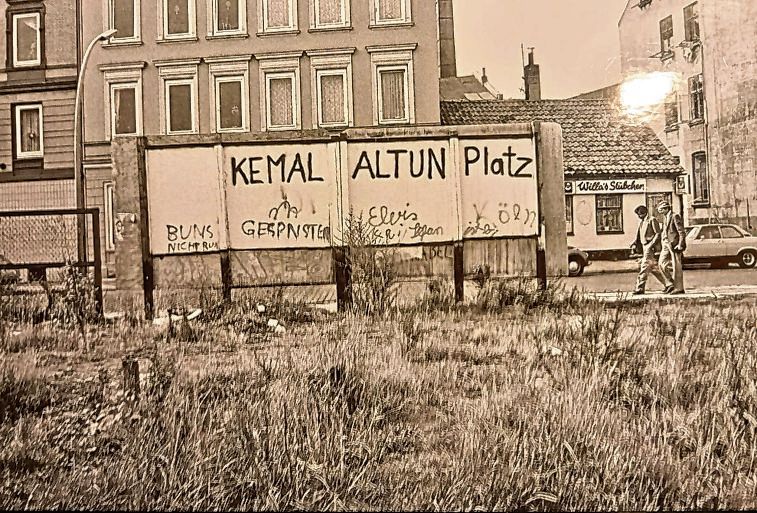 KEMAL ALTUN Platz
Willa's Stübchen
Elvis Köln
BUNS GESPNSTER
NICHT RUM